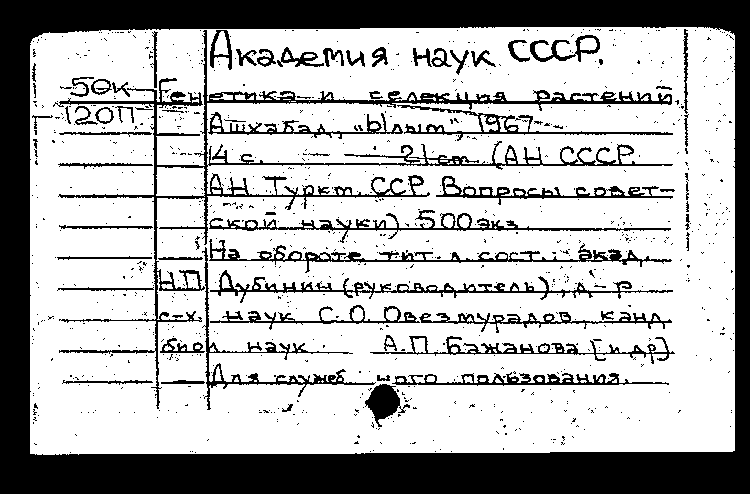 Академия наук СССР.
50к
12011
Генетика и селекция растений.
Ашхабад, "Ылым", 1967
14 с. — 21 cm (АН СССР.
АН Туркт. ССР. Вопросы совет-
ской науки). 500 экз.
На обороте тит. л. сост.: акад.
Н.П. Дубинин (руководитель), д-р
с-х. наук С.О. Овезмурадов, канд.
биол. наук А.П. Бажанова [и др]
Для служеб ного пользования.